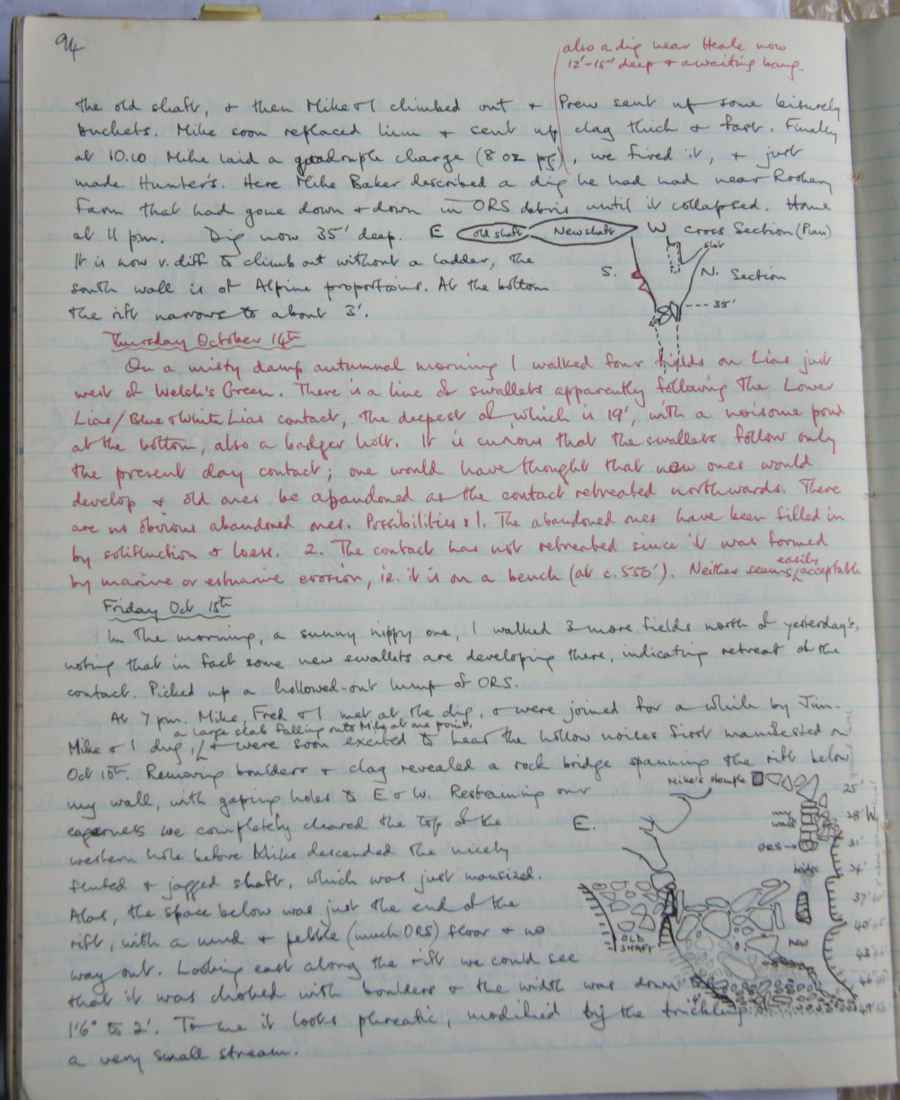 94
also a dig near Heale now
12'-15' deep & awaiting bang.
the old shaft, & then Mike & I climbed out & Prew sent up some leisurely
buckets. Mike soon replaced him & sent up clag thick & fast. Finally
at 10.10 Mike laid a quadruple charge (8 oz pg), we fired it, & just
made Hunter's. Here Mike Baker described a dig he had had near Rookery
Farm that had gone down & down in ORS debris until it collapsed. Home
at 11 pm. Dig now 35' deep. E old shaft New shaft W cross Section (Plan)
It is now v. diff to climb out without a ladder, the
slot
south wall is of Alpine proportions. At the bottom
S. N. Section
the rift narrows to about 3'.
35'
Thursday October 14th
On a misty damp autumnal morning I walked four fields on Lias just
west of Welsh's Green. There is a line of swallets apparently following the Lower
Lias/Blue & White Lias contact, the deepest of which is 19', with a noisome pond
at the bottom, also a badger holt. It is curious that the swallets follow only
the present day contact; one would have thought that new ones would
develop & old ones be abandoned as the contact retreated northwards. There
are no obvious abandoned ones. Possibilities: 1. The abandoned ones have been filled in
by solifluction & loess. 2. The contact has not retreated since it was formed
by marine or estuarine erosion, i.e. it is on a bench (at c.550'). Neither seems easily acceptable
Friday Oct 15th
In the morning, a sunny nippy one, I walked 3 more fields north of yesterday's,
noting that in fact some new swallets are developing there, indicating retreat of the
contact. Picked up a hollowed-out lump of ORS.
At 7 pm. Mike, Fred & I met at the dig, & were joined for a while by Jim.
a large slab falling onto Mike at one point,
Mike & I dug, & were soon excited to hear the hollow noises first manifested on
Oct 10th. Removing boulders & clag revealed a rock bridge spanning the rift below
Mike's 25'
my wall, with gaping holes to E & W. Restraining our
E. 28' W
eagerness we completely cleared the top of the
ORS 31'
western hole before Mike descended the nicely
bridge 34'
fluted & jagged shaft, which was just mansized.
37'
Alas, the space below was just the end of the
OLD SHAFT 40'
rift, with a mud & pebble (much ORS) floor & no
43'
way out. Looking east along the rift we could see
46'
that it was choked with boulders & the width was down to
49'
1'6" to 2'. To me it looks phreatic, modified by the trickling
a very small stream.